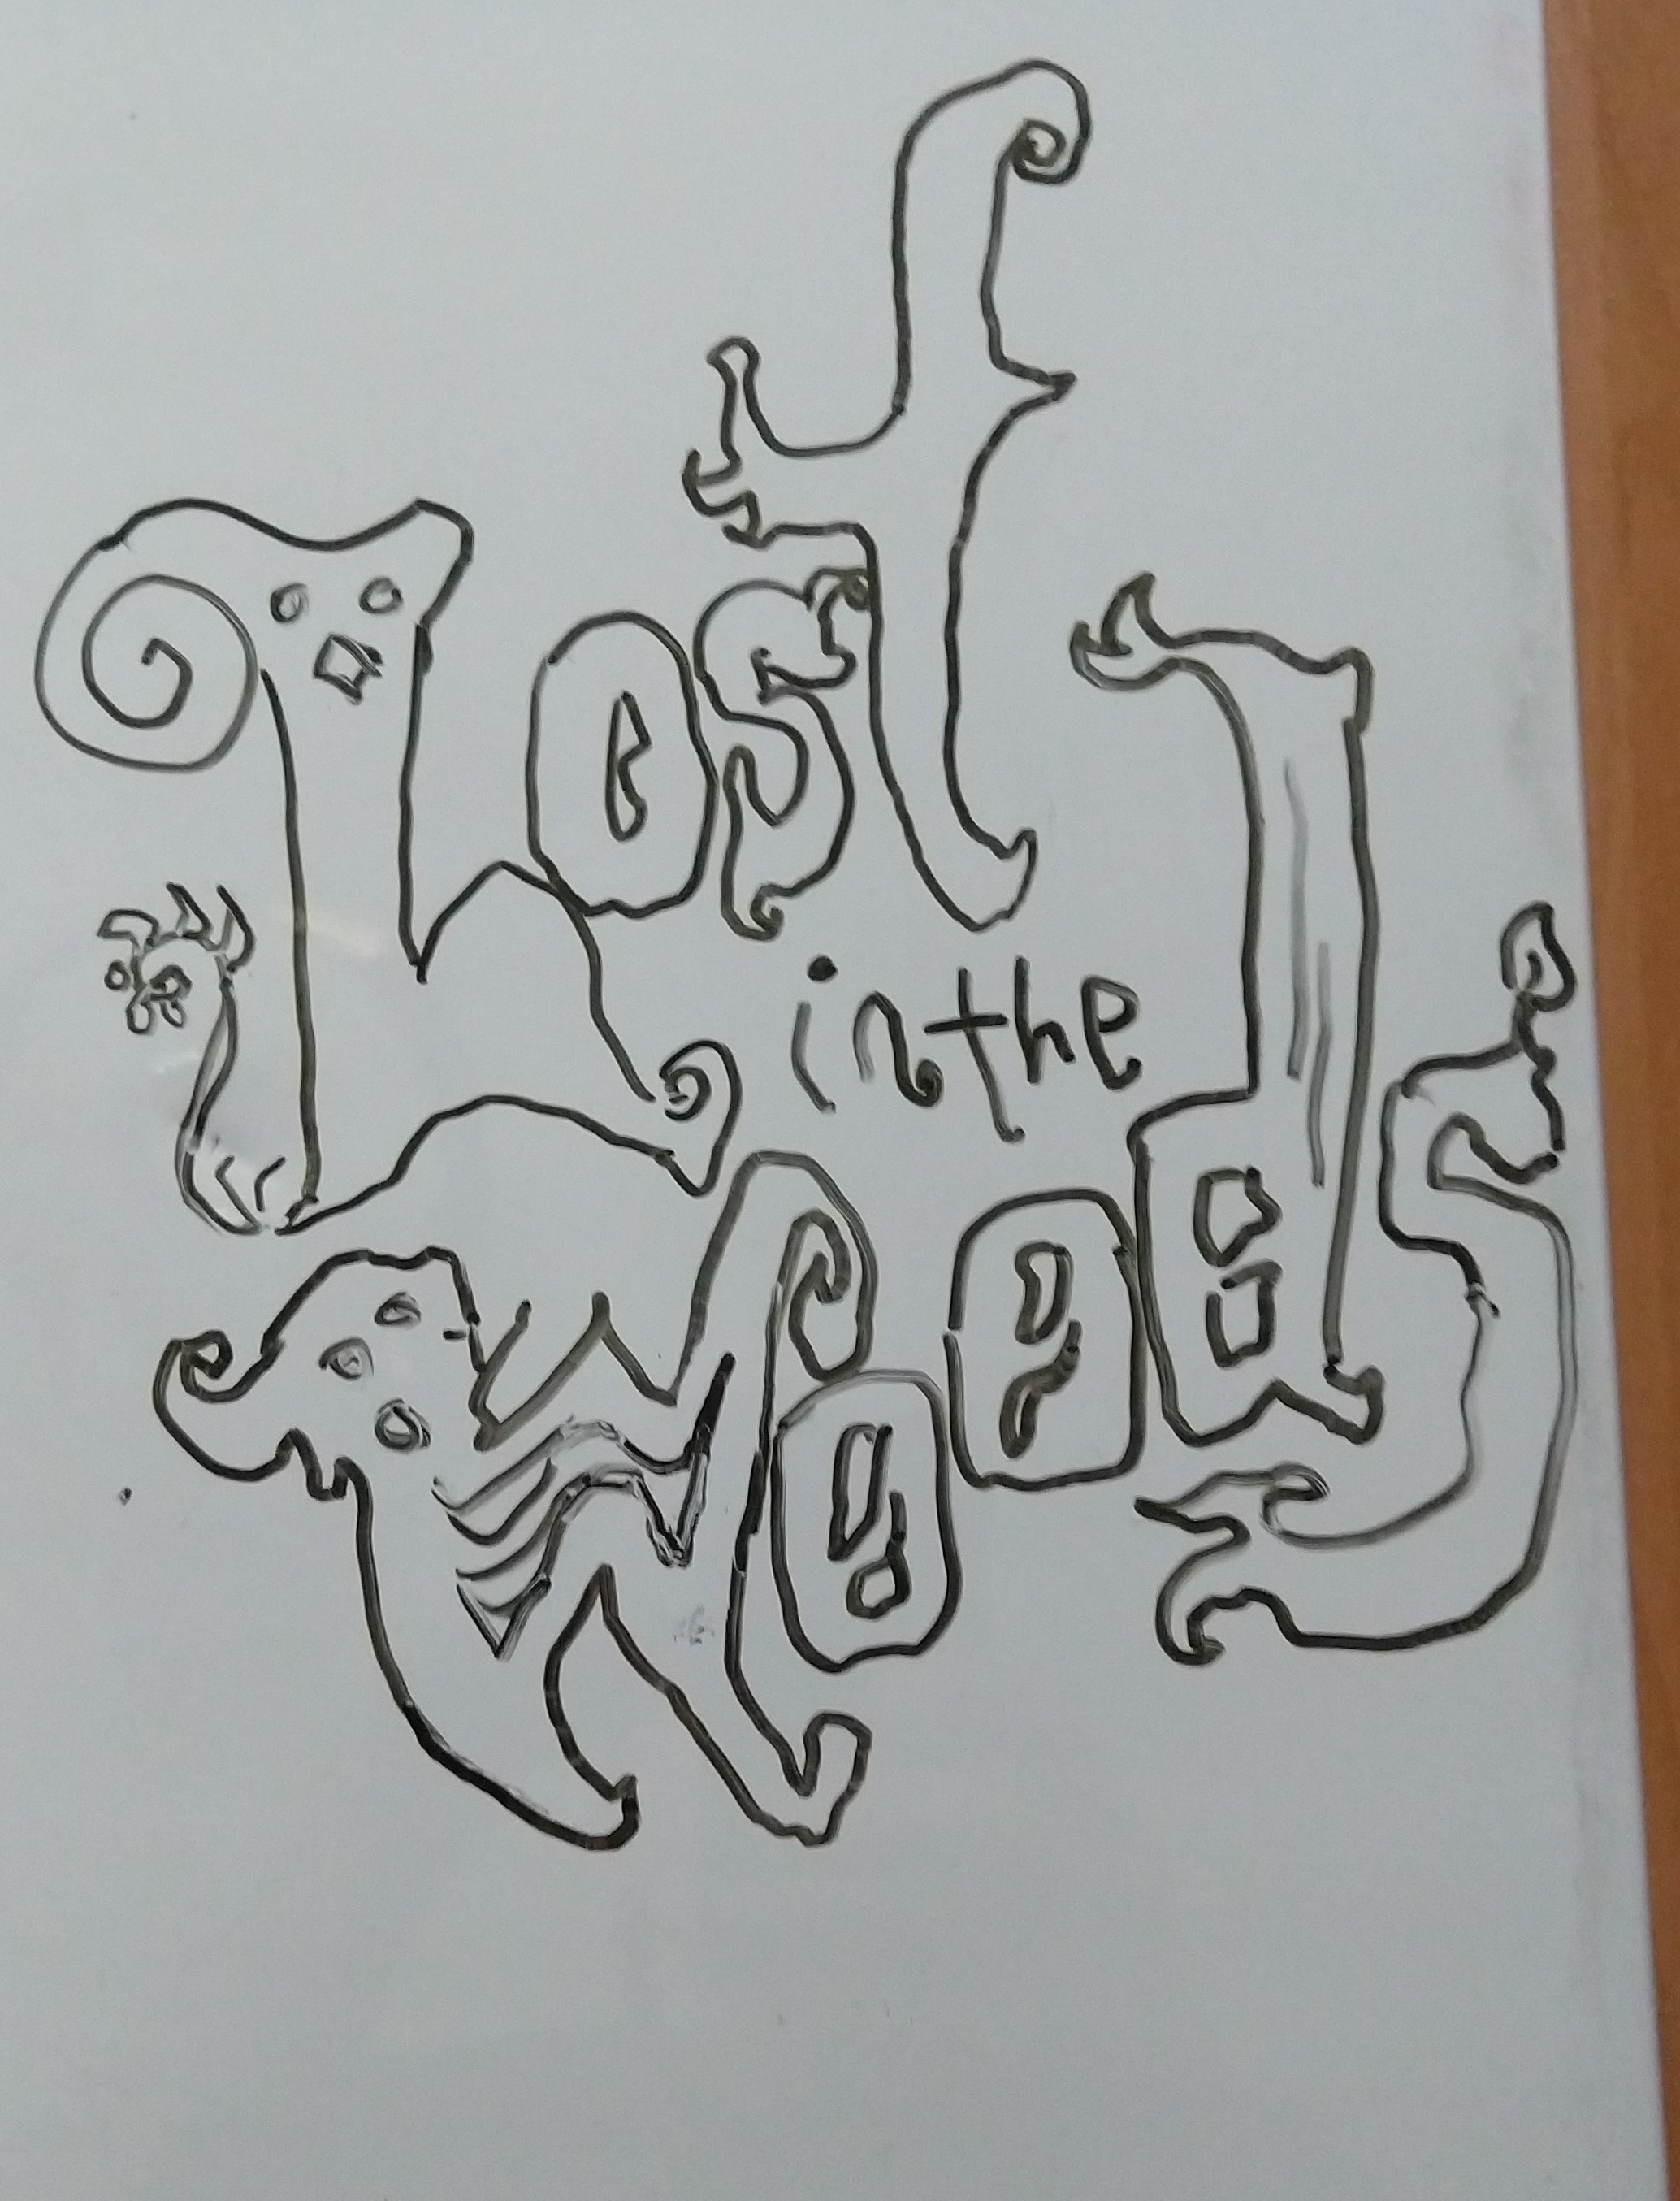 Lost
in the
Woods